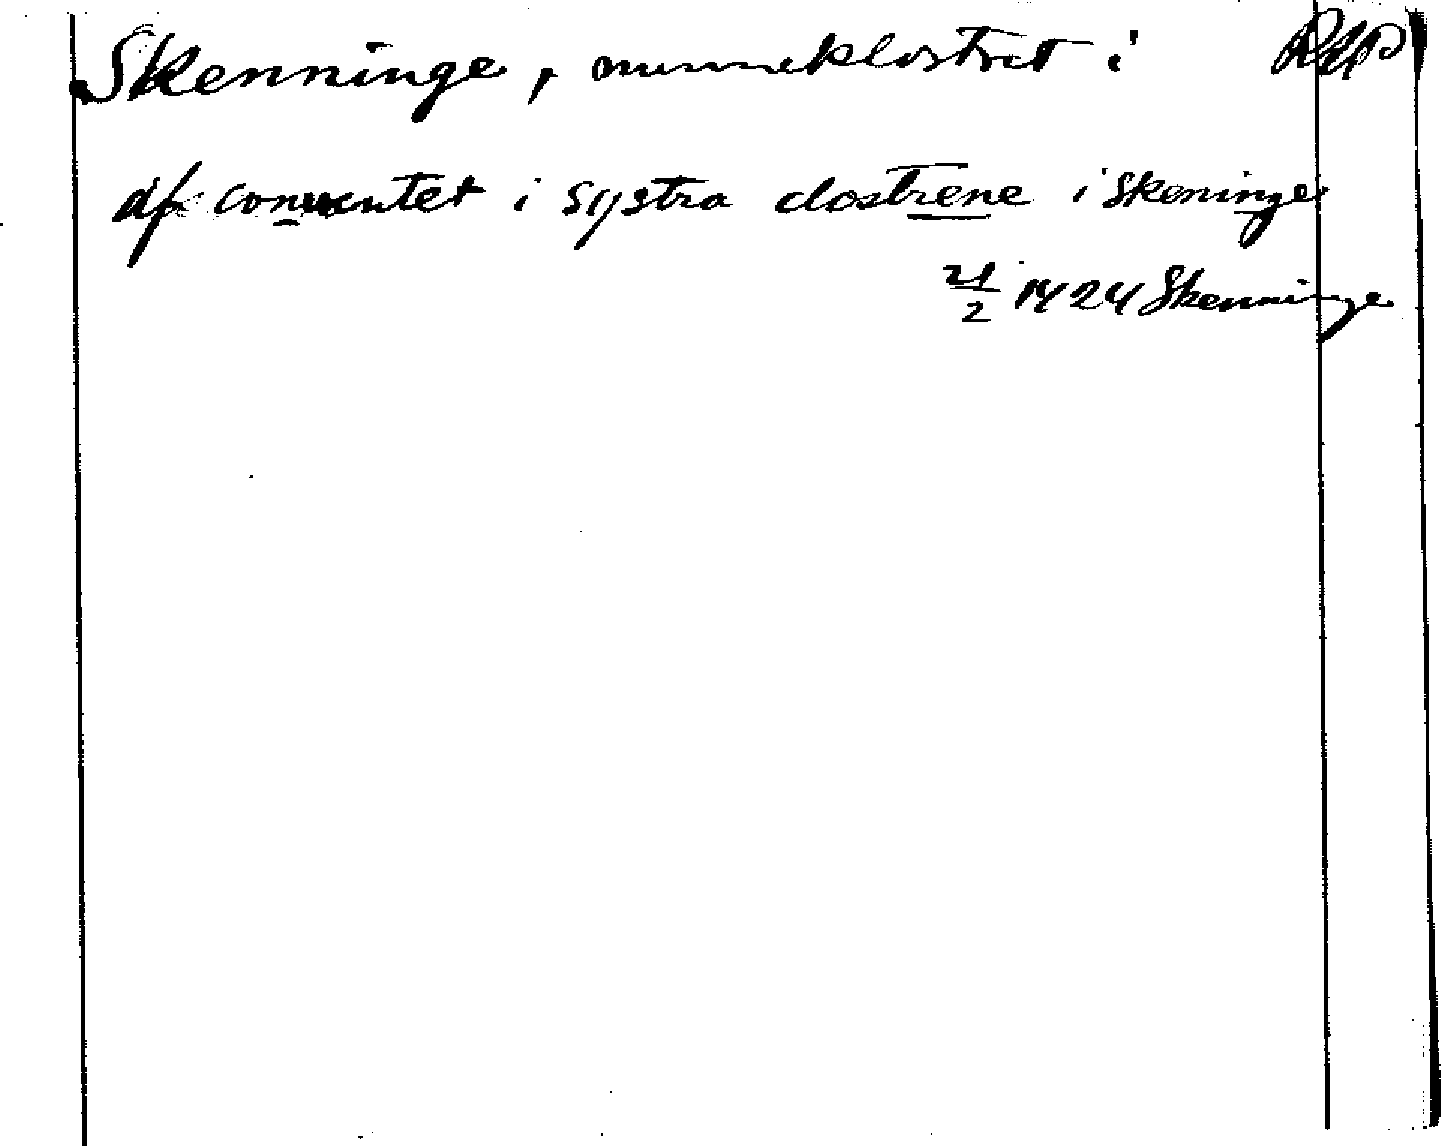 Skenninge, nunneklostret i RAP
af conuentet i systra clostrene i Skeninge
21/2 1424 Skenninge